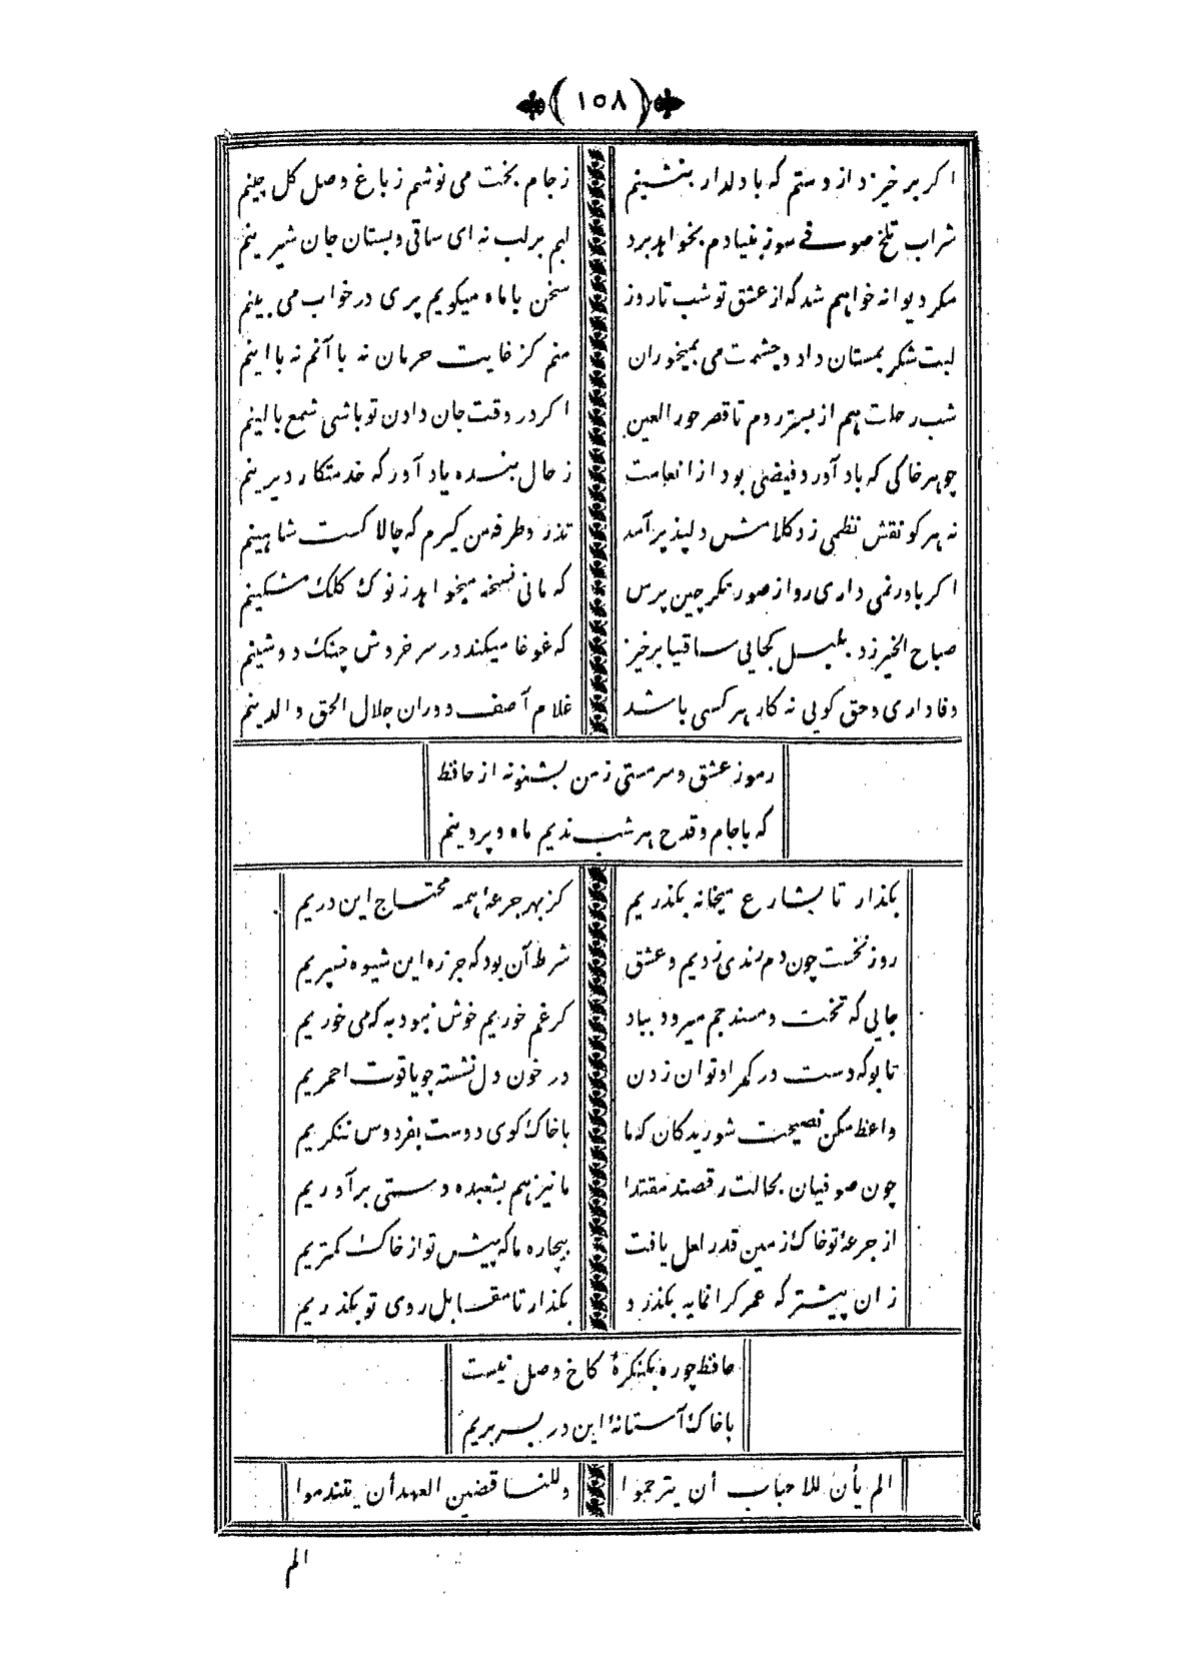 ١٥٨
اكر بر خيزد از دستم كه با دلدار بنشينم
ز جام بخت مى نوشم ز باغ وصل كل چينم
شراب تلخ صوفى سوز بنيادم بخواهد برد
لبم بر لب نه اى ساقى و بستان جان شيرينم
مكر ديوانه خواهم شد كه از عشق تو شب تا روز
سخن با ماه ميكويم پرى در خواب مى بينم
لبت شكر بمستان داد و چشمت مى بميخوران
منم كز غايت حرمان نه با آنم نه با اينم
شب رحلت هم از بستر روم تا قصر حور العين
اكر در وقت جان دادن تو باشى شمع بالينم
چو هر خاكى كه باد آورد فيضى بود از انعامت
ز حال بنده ياد آور كه خدمتكار ديرينم
نه هر كو نقش نظمى زد كلامش دلپذير آمد
تذرو طرفه من كيرم كه چالاكست شاهينم
اكر باور نمى دارى رو از صورتكر چين پرس
كه مانى نسخه ميخواهد ز نوك كلك مشكينم
صباح الخير زد بلبل كجايى ساقيا برخيز
كه غوغا ميكند در سر خروش چنك دوشينم
وفادارى و حق كويى نه كار هر كسى باشد
غلام آصف دوران جلال الحق و الدينم
رموز عشق و سرمستى ز من بشنو نه از حافظ
كه با جام و قدح هر شب نديم ماه و پروينم
بكذار تا بشارع ميخانه بكذريم
كز بهر جرعهٔ همه محتاج اين دريم
روز نخست چون دم رندى زديم و عشق
شرط آن بود كه جز ره اين شيوه نسپريم
جايى كه تخت و مسند جم ميرود بباد
كر غم خوريم خوش نبود به كه مى خوريم
تا بو كه دست در كمر او توان زدن
در خون دل نشسته چو ياقوت احمريم
واعظ مكن نصيحت شوريدكان كه ما
با خاك كوى دوست بفردوس ننكريم
چون صوفيان بحالت رقصند مقتدا
ما نيز هم بشعبده دستى برآوريم
از جرعهٔ تو خاك زمين قدر لعل يافت
بيچاره ما كه پيش تو از خاك كمتريم
زان پيشتر كه عمر كرانمايه بكذرد
بكذار تا مقابل روى تو بكذريم
حافظ چو ره بكنكرهٔ كاخ وصل نيست
با خاك آستانهٔ اين در بسر بريم
الم يأن للاحباب أن يترحموا
وللناقضين العهد أن يتندموا
الم